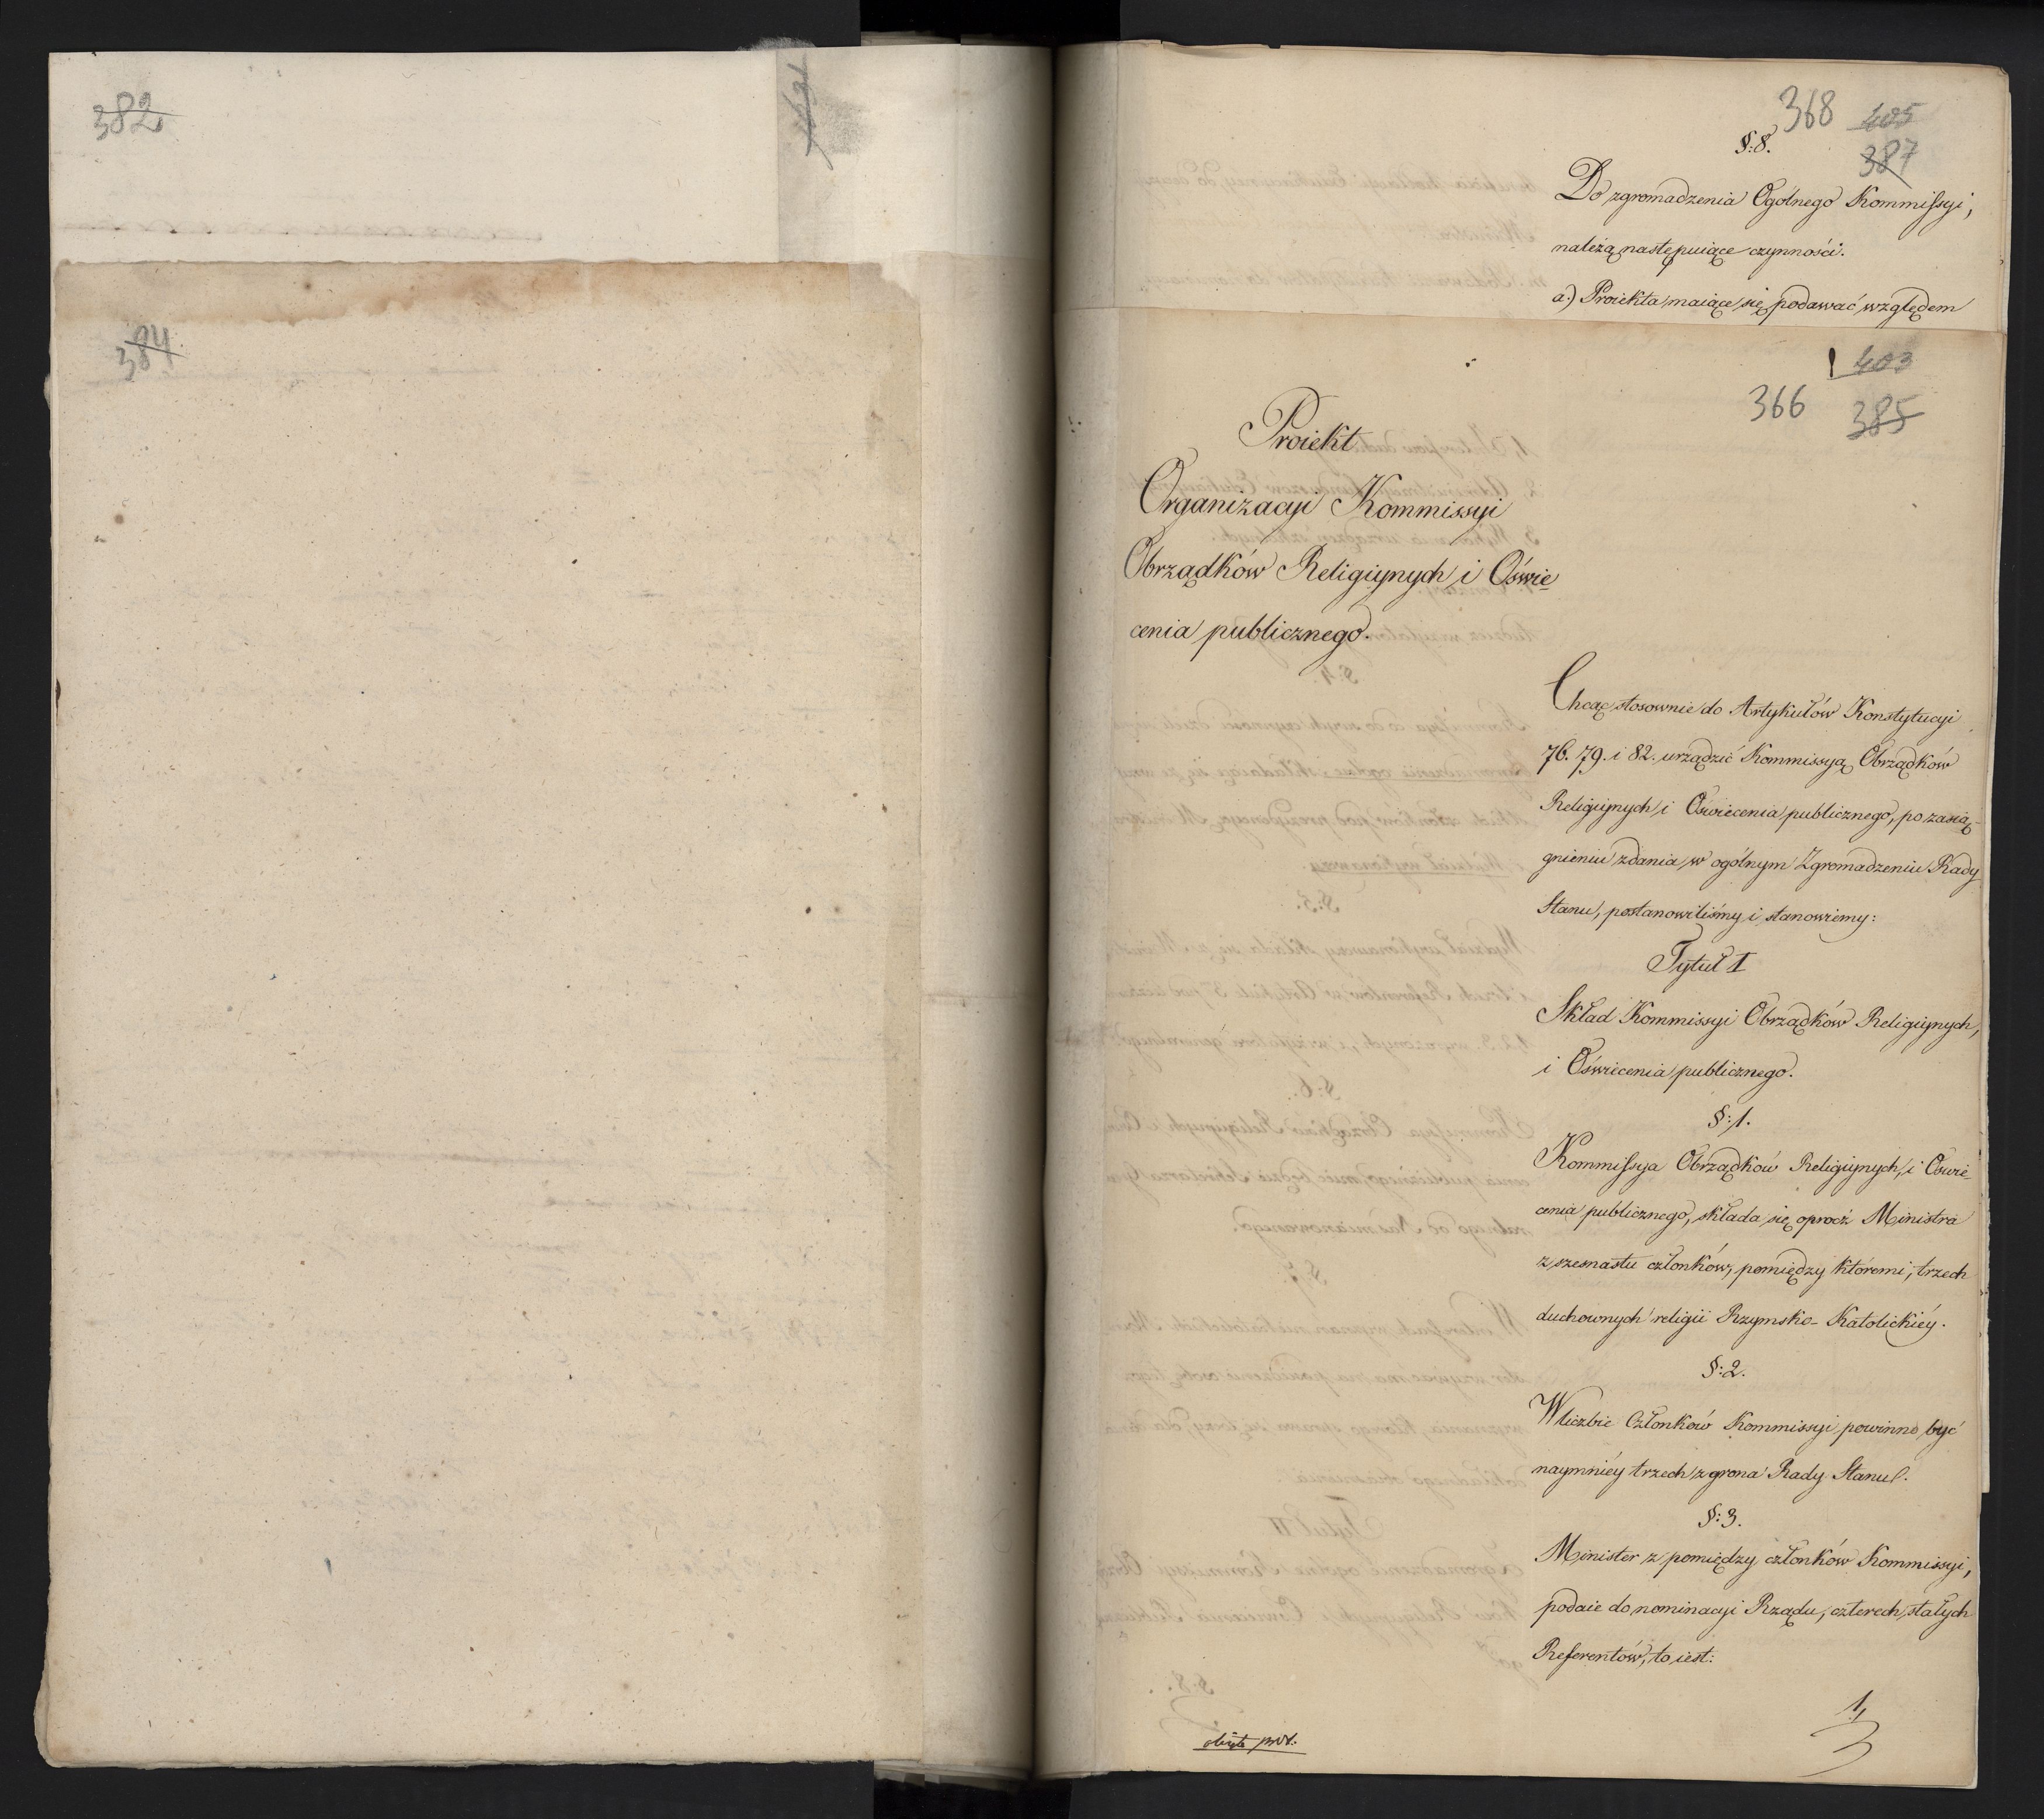 382
384
368 405
387
§: 8.
Do zgromadzenia Ogólnego Kommissyi,
należą następuiące czynności.
a.) Proiekta maiące się podawać względem
1 403
366 385
Proiekt
Organizacyi Kommissyi
Obrządków Religiynych i Oświe=
cenia publicznego.
Chcąc stosownie do Artykułów Konstytucyi
76. 79. i 82. urządzić Kommissyą Obrządków
Religiynych i Oświecenia publicznego, po zasią=
gnieniu zdania w ogólnym Zgromadzeniu Rady
Stanu, postanowiliśmy i stanowiemy:
Tytuł I
Skład Kommissyi Obrządków Religiynych,
i Oświecenia publicznego.
§: 1.
Kommissya Obrządków Religiynych, i Oświe=
cenia publicznego, składa się oprócz Ministra
z szesnastu członków, pomiędzy któremi, trzech
duchownych religii Rzymsko-Katolickiéy.
§: 2.
W liczbie Członków Kommissyi powinno być
naymniéy trzech z grona Rady Stanu.
§: 3.
Minister z pomiędzy członków Kommissyi,
podaie do nominacyi Rządu, czterech stałych
Referentów, to iest:
1,